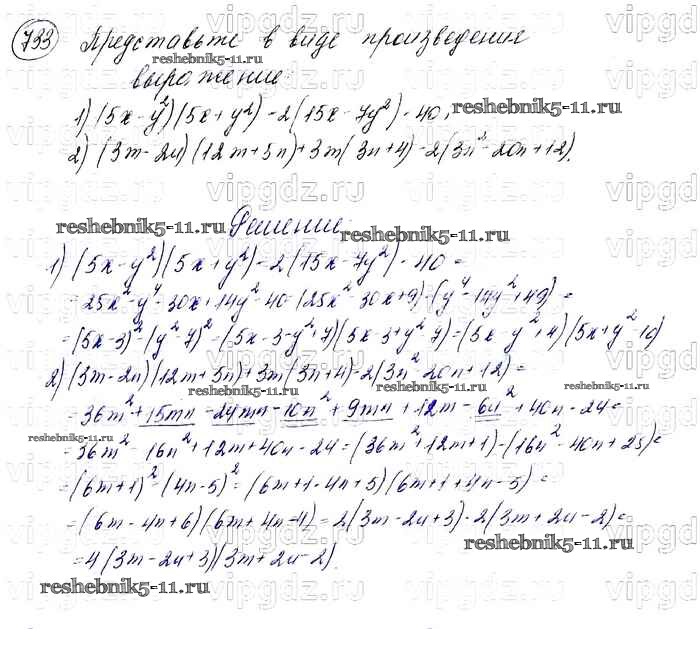 733 Представьте в виде произведения
выражение:
1) (5x-y²)(5x+y²)-2(15x-7y²)-40;
2) (3m-2n)(12m+5n)+3m(3n+4)-2(3n²-20n+12).
Решение:
1) (5x-y²)(5x+y²)-2(15x-7y²)-40=
=25x²-y⁴-30x+14y²-40=(25x²-30x+9)-(y⁴-14y²+49)=
=(5x-3)²-(y²-7)²=(5x-3-y²+7)(5x-3+y²-7)=(5x-y²+4)(5x+y²-10)
2) (3m-2n)(12m+5n)+3m(3n+4)-2(3n²-20n+12)=
=36m²+15mn-24mn-10n²+9mn+12m-6n²+40n-24=
=36m²-16n²+12m+40n-24=(36m²+12m+1)-(16n²-40n+25)=
=(6m+1)²-(4n-5)²=(6m+1-4n+5)(6m+1+4n-5)=
=(6m-4n+6)(6m+4n-4)=2(3m-2n+3)·2(3m+2n-2)=
=4(3m-2n+3)(3m+2n-2).
reshebnik5-11.ru
vipgdz.ru